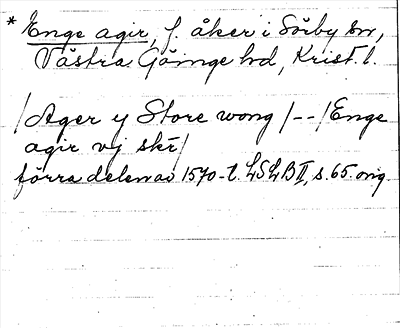 * Enge agir, f. åker i Sörby sn,
Västra Göinge hd, Krist. l.
/Ager y Store wong /--/ Enge
agir vj skr/
förra delen av 1570-t. LSLB II, s. 65. orig